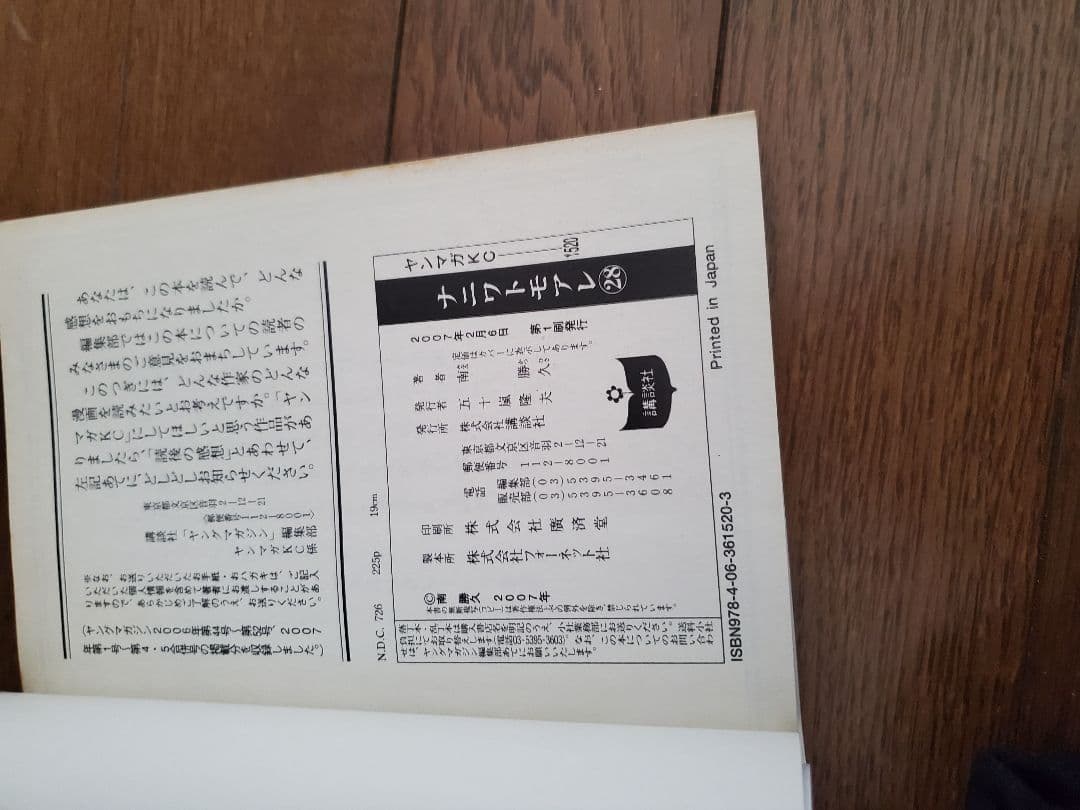 あなたは、この本を読んで、どんな
感想をおもちになりましたか。
編集部ではこの本についての読者の
みなさまのご意見をおまちしています。
このつぎには、どんな作家のどんな
漫画を読みたいとお考えですか。「ヤン
マガKC」にしてほしいと思う作品があ
りましたら、「読後の感想」とあわせて、
左記あてに、どしどしお知らせください。
東京都文京区音羽2-12-21
〈郵便番号112-8001〉
講談社「ヤングマガジン」編集部
ヤンマガKC係
※なお、お送りいただいたお手紙・おハガキは、ご記入
いただいた個人情報を含めて著者にお渡しすることがあ
りますので、あらかじめご了解のうえ、お送りください。
(ヤングマガジン2006年第44号~第52号、2007
年第1号~第4・5合併号の掲載分を収録しました。)
ヤンマガKC 1520
ナニワトモアレ㉘
2007年2月6日 第1刷発行
定価はカバーに表示してあります。
著者 南 勝久
発行者 五十嵐隆夫
発行所 株式会社講談社
東京都文京区音羽2-12-21
郵便番号112-8001
電話 編集部(03)5395-3461
販売部(03)5395-3608
印刷所 株式会社廣済堂
製本所 株式会社フォーネット社
©南 勝久 2007年
本書の無断複写(コピー)は著作権法上の例外を除き、禁じられています。
落丁本・乱丁本は購入書店名を明記のうえ、小社業務部にお送りください。送料小社
負担にてお取り替えします。なお、この本についてのお問い合わ
せは、ヤングマガジン編集部あてにお願いいたします。
講談社
N.D.C. 726 225p 19cm
ISBN978-4-06-361520-3
Printed in Japan